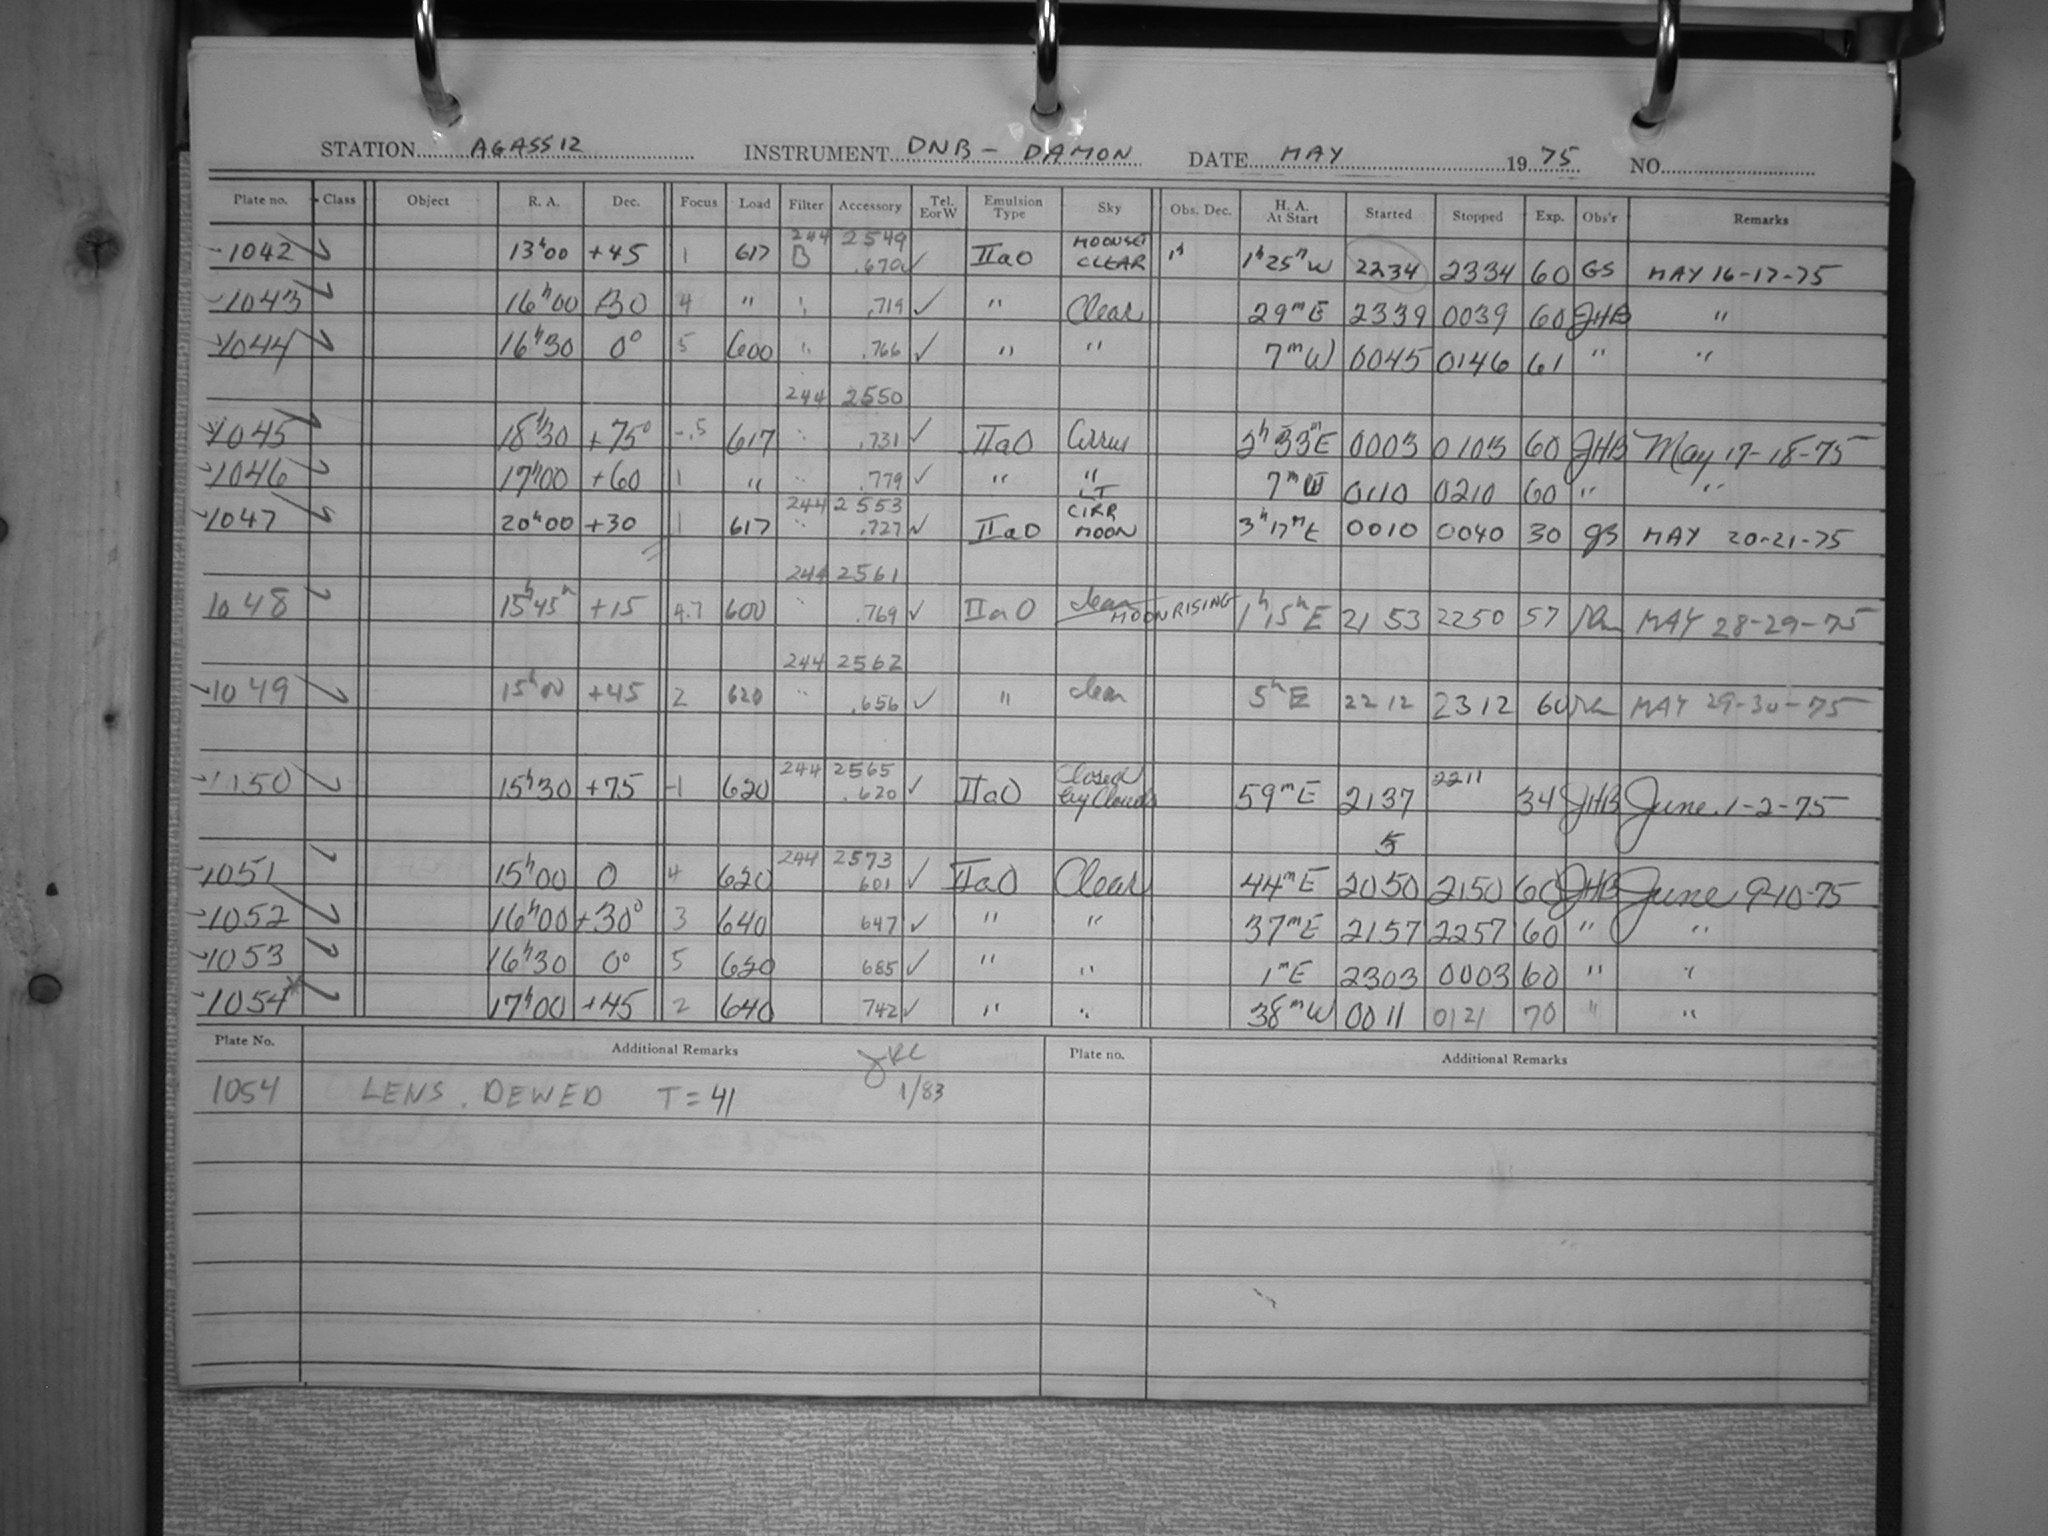 STATION AGASSIZ INSTRUMENT DNB - DAMON DATE MAY 19 75 NO.
Plate no. Class Object R. A. Dec. Focus Load Filter Accessory Tel. E or W Emulsion Type Sky Obs. Dec. H. A. At Start Started Stopped Exp. Obs'r Remarks
244 2549 MOONSET
1042 13h00 +45 1 617 B .670 ✓ IIaO CLEAR 1h25m W 2234 2334 60 GS MAY 16-17-75
1043 16h00 +30 4 " " .719 ✓ " Clear 29m E 2339 0039 60 JHB "
1044 16h30 0° 5 600 " .766 ✓ " " 7m W 0045 0146 61 " "
244 2550
1045 18h30 +75° -.5 617 " .731 ✓ IIaO Cirrus 2h 33m E 0003 0103 60 JHB May 17-18-75
1046 17h00 +60 1 " " .779 ✓ " " 7m W 0110 0210 60 " "
244 2553 LT CIRR
1047 20h00 +30 1 617 " .727 ✓ IIaO MOON 3h17m E 0010 0040 30 GS MAY 20-21-75
244 2561
1048 15h45m +15 4.7 600 " .769 ✓ IIaO clear MOON RISING 1h 15m E 2153 2250 57 MAY 28-29-75
244 2562
1049 15h00 +45 2 620 " .656 ✓ " clear 5m E 2212 2312 60 MAY 29-30-75
244 2565 Closed
1150 15h30 +75 -1 620 .620 ✓ IIaO by Clouds 59m E 2137 2211 34 JHB June 1-2-75
5
244 2573
1051 15h00 0 4 620 601 ✓ IIaO Clear 44m E 2050 2150 60 JHB June 9-10-75
1052 16h00 +30° 3 640 647 ✓ " " 37m E 2157 2257 60 " "
1053 16h30 0° 5 620 685 ✓ " " 1m E 2303 0003 60 " "
1054* 17h00 +45 2 640 742 ✓ " " 38m W 0011 0121 70 " "
Plate No. Additional Remarks Plate no. Additional Remarks
1054 LENS DEWED T = 41 1/83